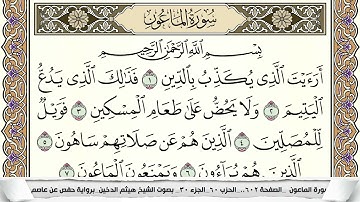 سُورَةُ الْمَاعُونِ
بِسْمِ اللَّهِ الرَّحْمَٰنِ الرَّحِيمِ
أَرَءَيْتَ الَّذِي يُكَذِّبُ بِالدِّينِ ١ فَذَٰلِكَ الَّذِي يَدُعُّ
الْيَتِيمَ ٢ وَلَا يَحُضُّ عَلَىٰ طَعَامِ الْمِسْكِينِ ٣ فَوَيْلٌ
لِّلْمُصَلِّينَ ٤ الَّذِينَ هُمْ عَن صَلَاتِهِمْ سَاهُونَ ٥
الَّذِينَ هُمْ يُرَاءُونَ ٦ وَيَمْنَعُونَ الْمَاعُونَ ٧
ورة الماعون ..الصفحة ٦٠٢.. الحزب ٦٠..الجزء ٣٠.. بصوت الشيخ هيثم الدخين برواية حفص عن عاصم